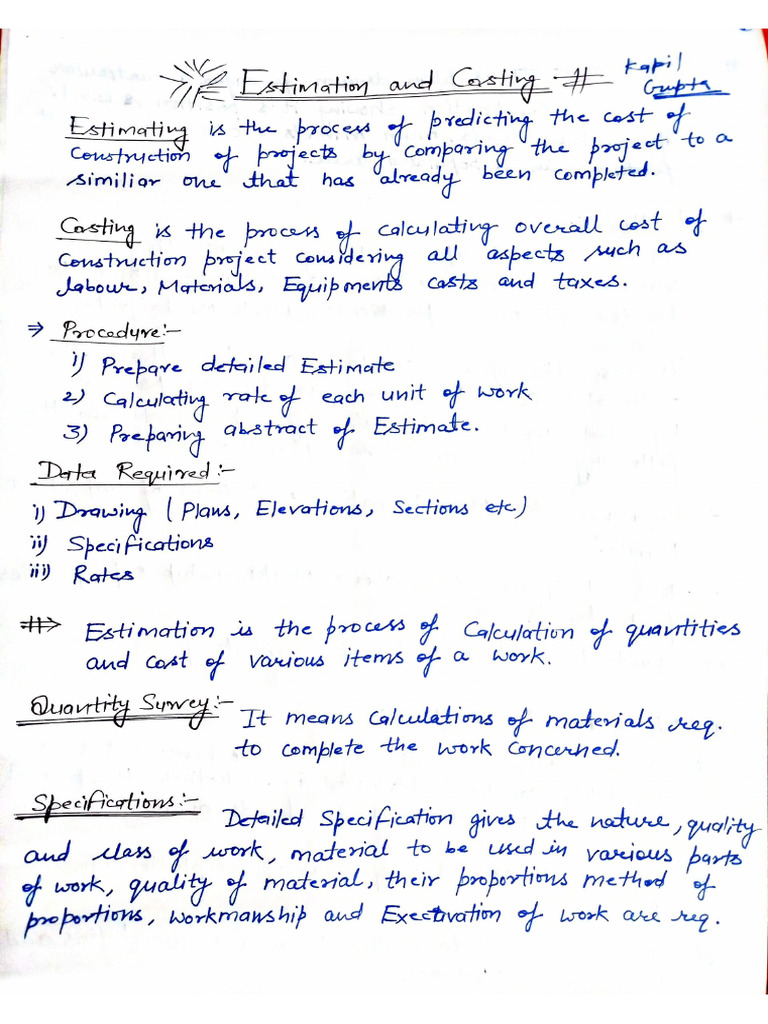 Estimation and Costing #
Kapil
Gupta
Estimating is the process of predicting the cost of
Construction of projects by comparing the project to a
similiar one that has already been completed.
Costing is the process of calculating overall cost of
Construction project considering all aspects such as
labour, Materials, Equipments costs and taxes.
⇒ Procedure:-
1) Prepare detailed Estimate
2) Calculating rate of each unit of work
3) Preparing abstract of Estimate.
Data Required:-
i) Drawing (Plans, Elevations, Sections etc)
ii) Specifications
iii) Rates
Estimation is the process of Calculation of quantities
and cost of various items of a work.
Quantity Survey:-
It means Calculations of materials req.
to complete the work concerned.
Specifications:-
Detailed Specification gives the nature, quality
and class of work, material to be used in various parts
of work, quality of material, their proportions method of
proportions, workmanship and of work are req.